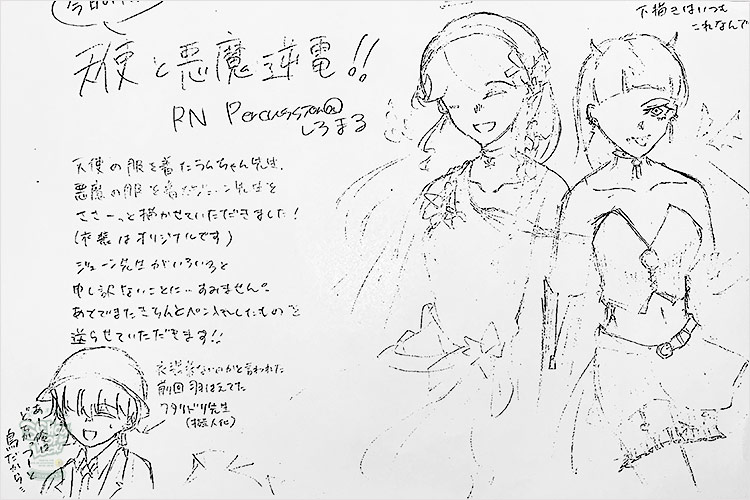 今日の
下描きはいつも
これなんで
天使と悪魔逆電!!
RN Percussionの
しろまる
天使の服を着たらんちゃん先生、
悪魔の服を着たジェーン先生を
ささーっと描かせていただきました!
(衣装はオリジナルです)
ジェーン先生がいろいろと
申し訳ないことに…すみません。
あとでまたきちんとペン入れしたものを
送らせていただきます!!
衣装着ないのかと言われた
前回羽はえてた
フタリドリ先生
(擬人化)
あー俺は
どっかつーと
鳥だから…